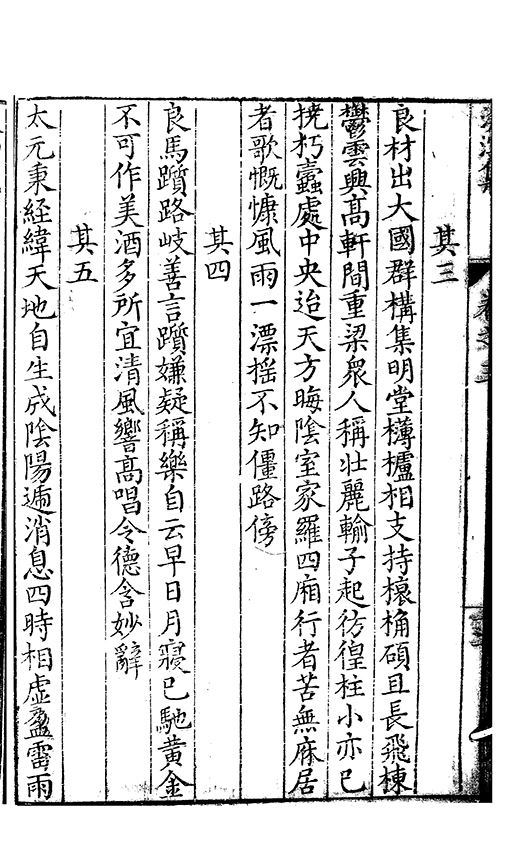 其三
良材出大國群構集明堂欂櫨相支持榱桷碩且長飛棟
鬱雲興髙軒間重梁衆人稱壯麗輸子起彷徨柱小亦巳
撓朽蠹處中央迨天方晦陰室家羅四廂行者苦無庥居
者歌慨慷風雨一漂搖不知僵路傍
其四
良馬躓路岐善言躓嫌疑稱樂自云早日月寢巳馳黄金
不可作美酒多所宜清風響髙唱令德含妙辭
其五
太元秉経緯天地自生成陰陽遞消息四時相虚盈雷雨